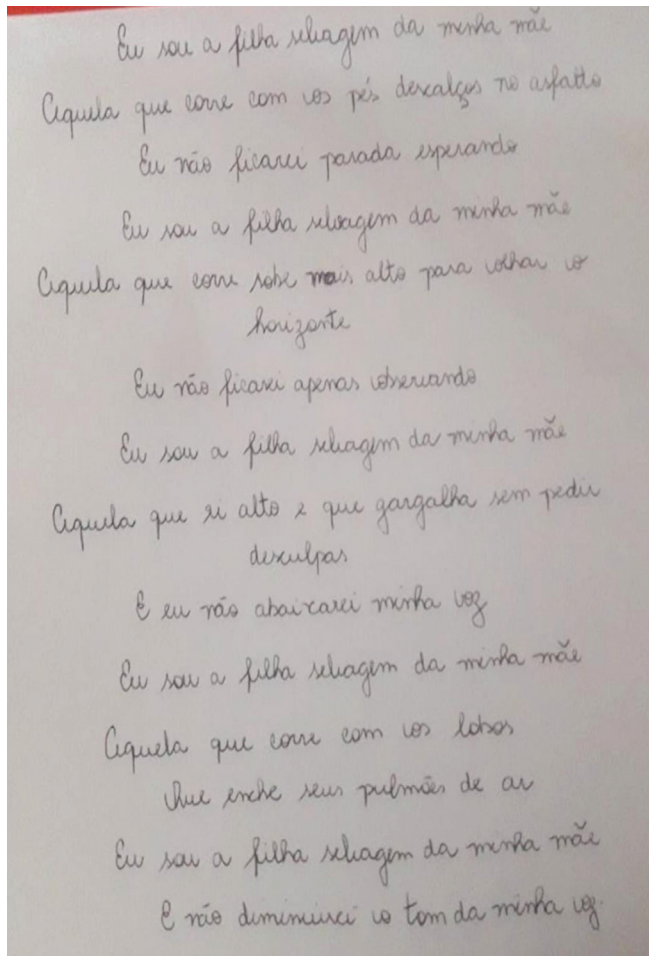 Eu sou a filha selvagem da minha mãe
Aquela que corre com os pés descalços no asfalto
Eu não ficarei parada esperando
Eu sou a filha selvagem da minha mãe
Aquela que corre sobe mais alto para olhar o
horizonte
Eu não ficarei apenas observando
Eu sou a filha selvagem da minha mãe
Aquela que ri alto e que gargalha sem pedir
desculpas
E eu não abaixarei minha voz
Eu sou a filha selvagem da minha mãe
Aquela que corre com os lobos
Que enche seus pulmões de ar
Eu sou a filha selvagem da minha mãe
E não diminuirei o tom da minha voz.